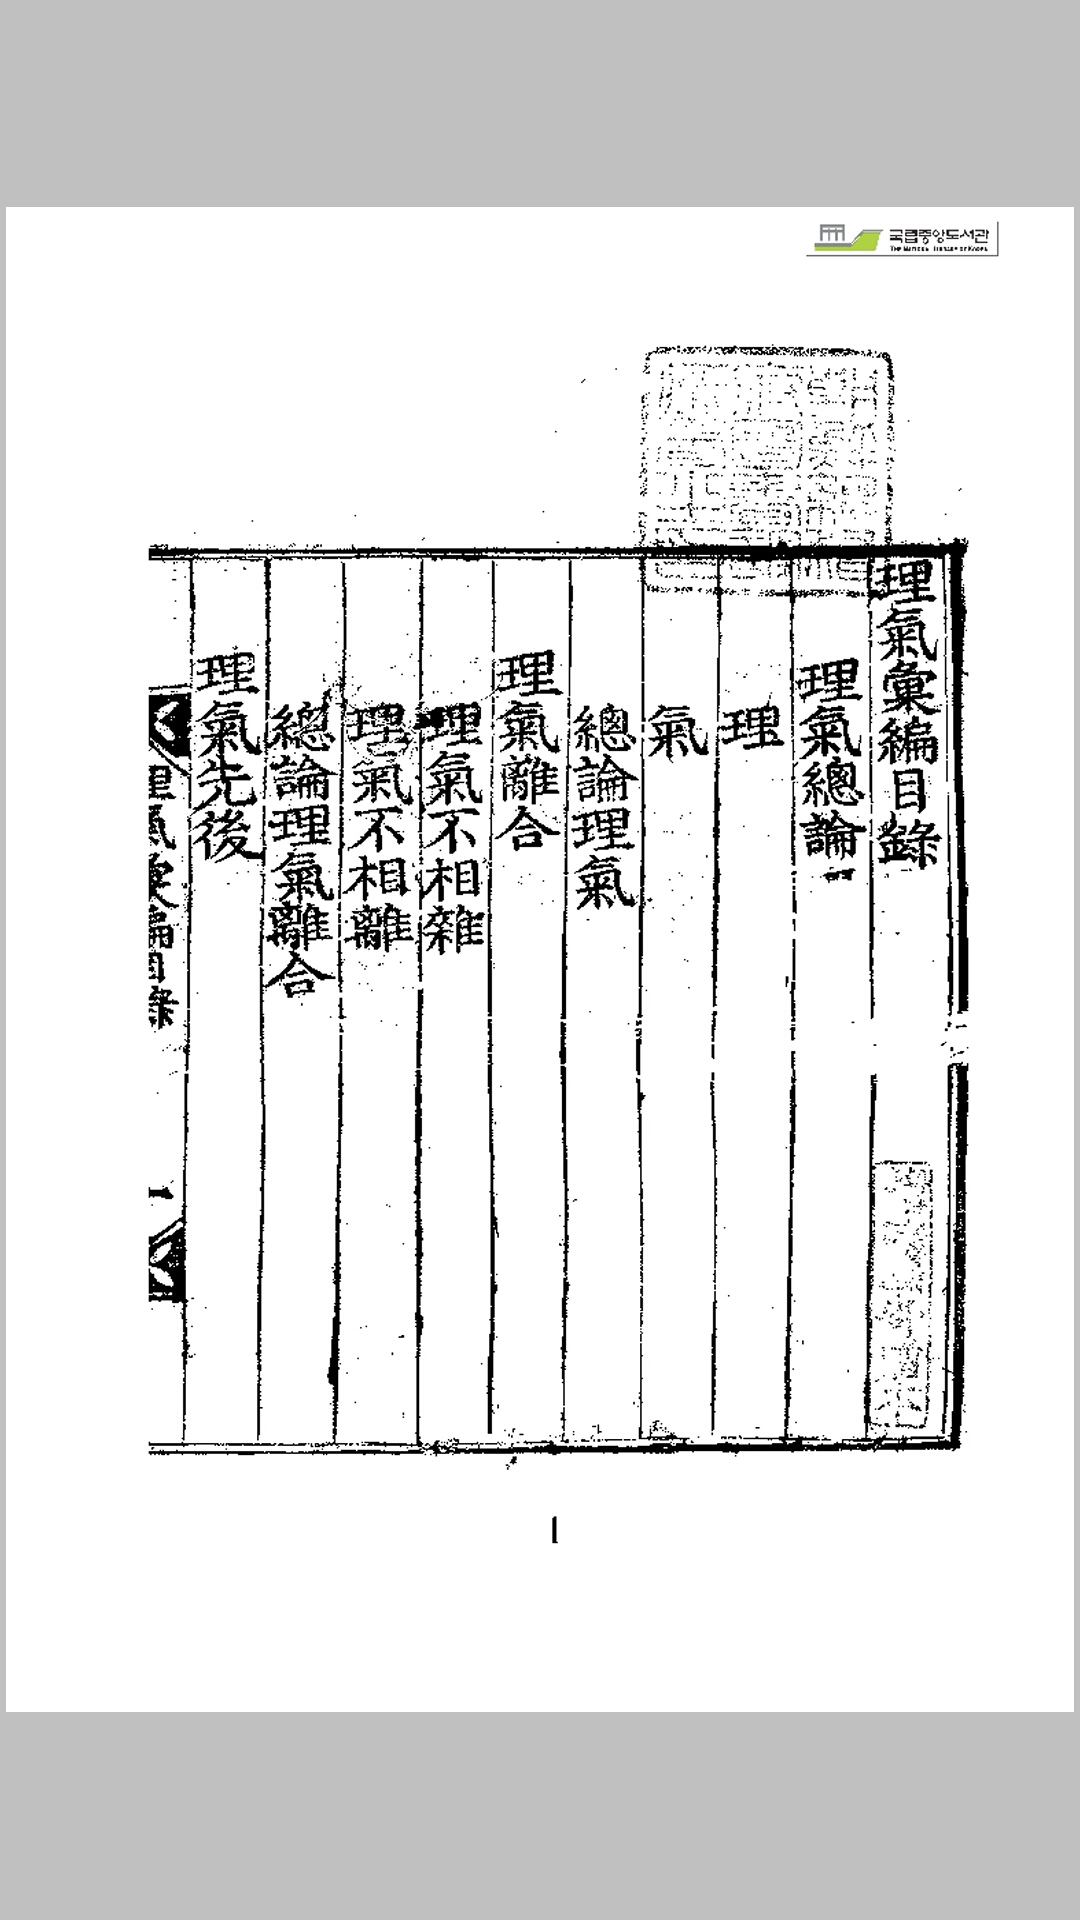 국립중앙도서관
THE NATIONAL LIBRARY OF KOREA
理氣彙編目錄
理氣總論
理
氣
總論理氣
理氣離合
理氣不相雜
理氣不相離
總論理氣離合
理氣先後
理氣彙編目錄
一
1